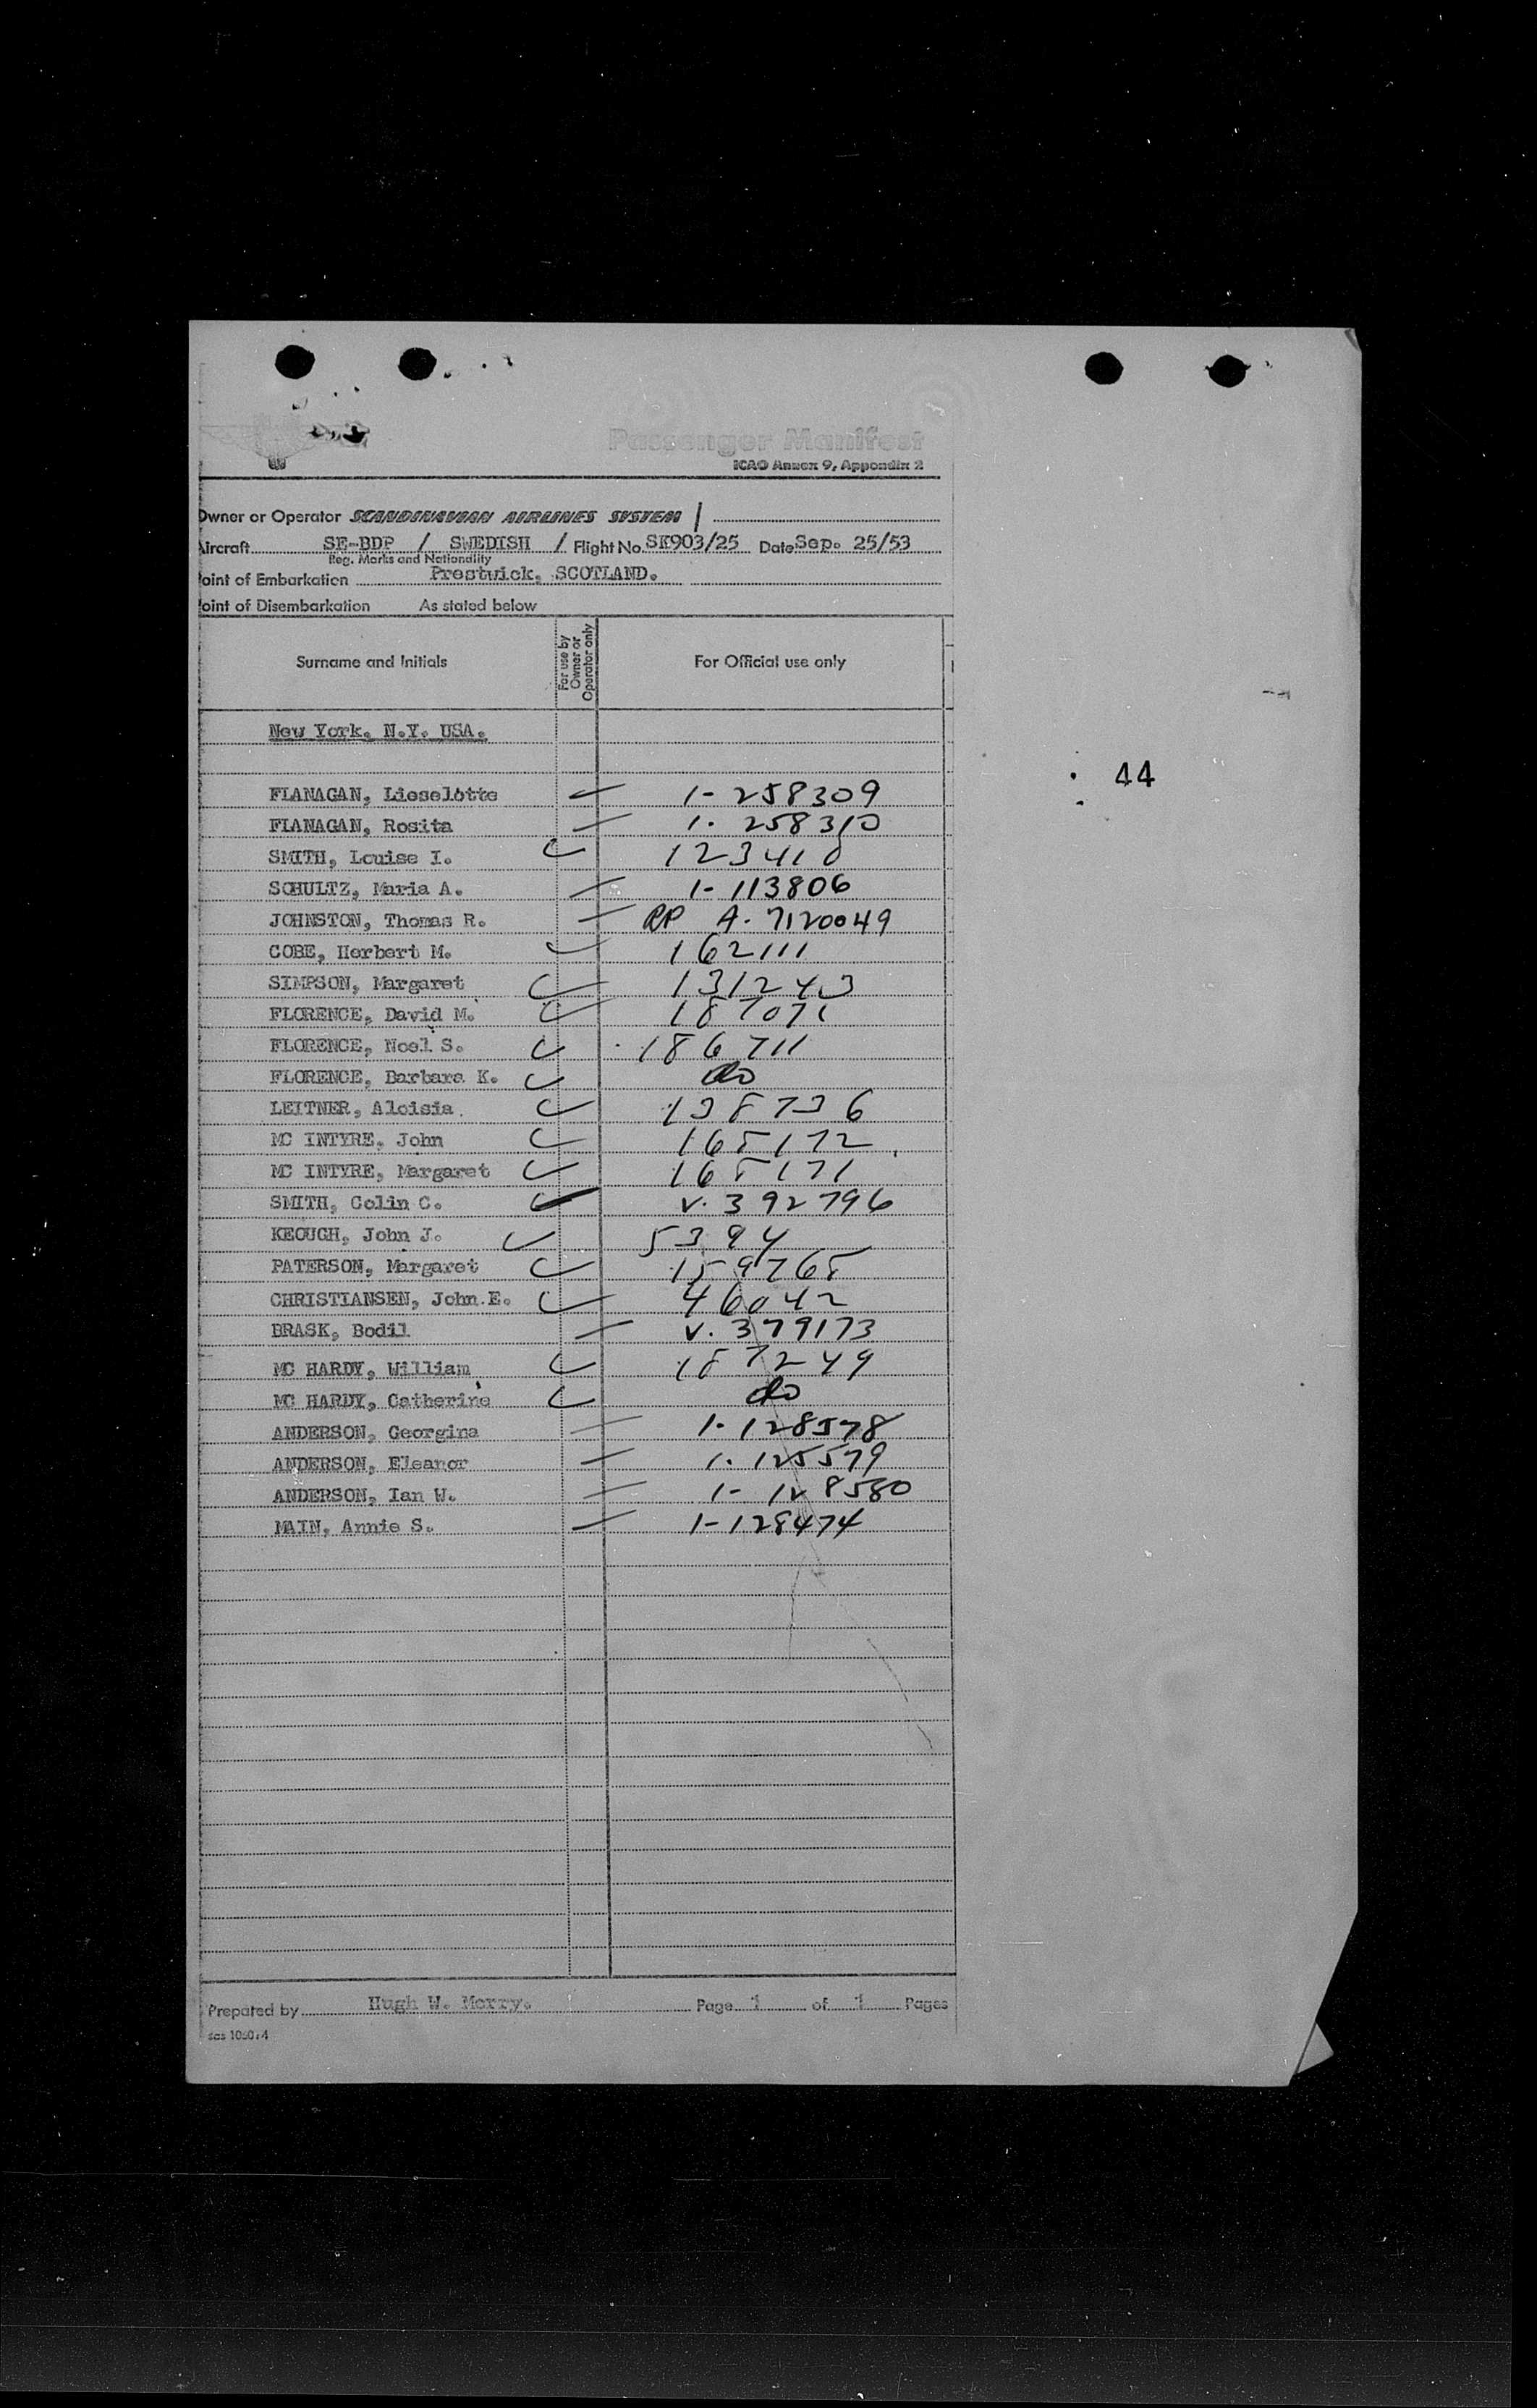 Passenger Manifest
ICAO Annex 9, Appendix 2
Owner or Operator SCANDINAVIAN AIRLINES SYSTEM
Aircraft SE-BDP / SWEDISH / Flight No. SK903/25 Date Sep. 25/53
Reg. Marks and Nationality
oint of Embarkation Prestwick, SCOTLAND.
oint of Disembarkation As stated below
Surname and Initials For use by Owner or Operator only For Official use only
New York, N.Y. USA.
44
FLANAGAN, Lieselotte 1-258309
FLANAGAN, Rosita 1. 258310
SMITH, Louise I. 123410
SCHULTZ, Maria A. 1-113806
JOHNSTON, Thomas R. RP A. 7120049
COBE, Herbert M. 162111
SIMPSON, Margaret 131243
FLORENCE, David M. 187071
FLORENCE, Noel S. 186711
FLORENCE, Barbara K. do
LEITNER, Aloisia 138736
MC INTYRE, John 168172
MC INTYRE, Margaret 168171
SMITH, Colin C. V. 392796
KEOUGH, John J. 5394
PATERSON, Margaret 159768
CHRISTIANSEN, John E. 46042
BRASK, Bodil V. 379173
MC HARDY, William 187249
MC HARDY, Catherine do
ANDERSON, Georgina 1-128578
ANDERSON, Eleanor 1. 125579
ANDERSON, Ian W. 1-128580
MAIN, Annie S. 1-128474
Prepared by Hugh W. Merry. Page 1 of 1 Pages